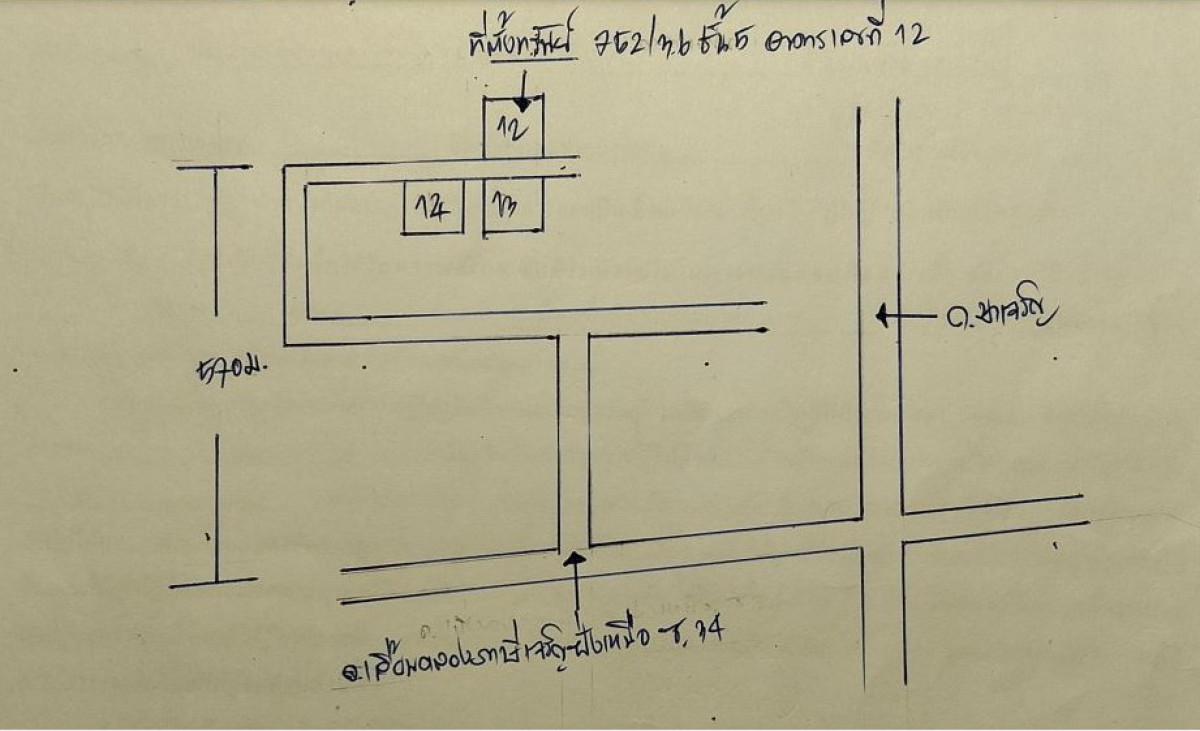 ที่ตั้งทรัพย์ 752/36 ชั้น5 อาคารเลขที่ 12
12
14 13
ถ.มาเจริญ
570ม.
ถ.เลียบคลองภาษีเจริญฝั่งเหนือ ซ.34